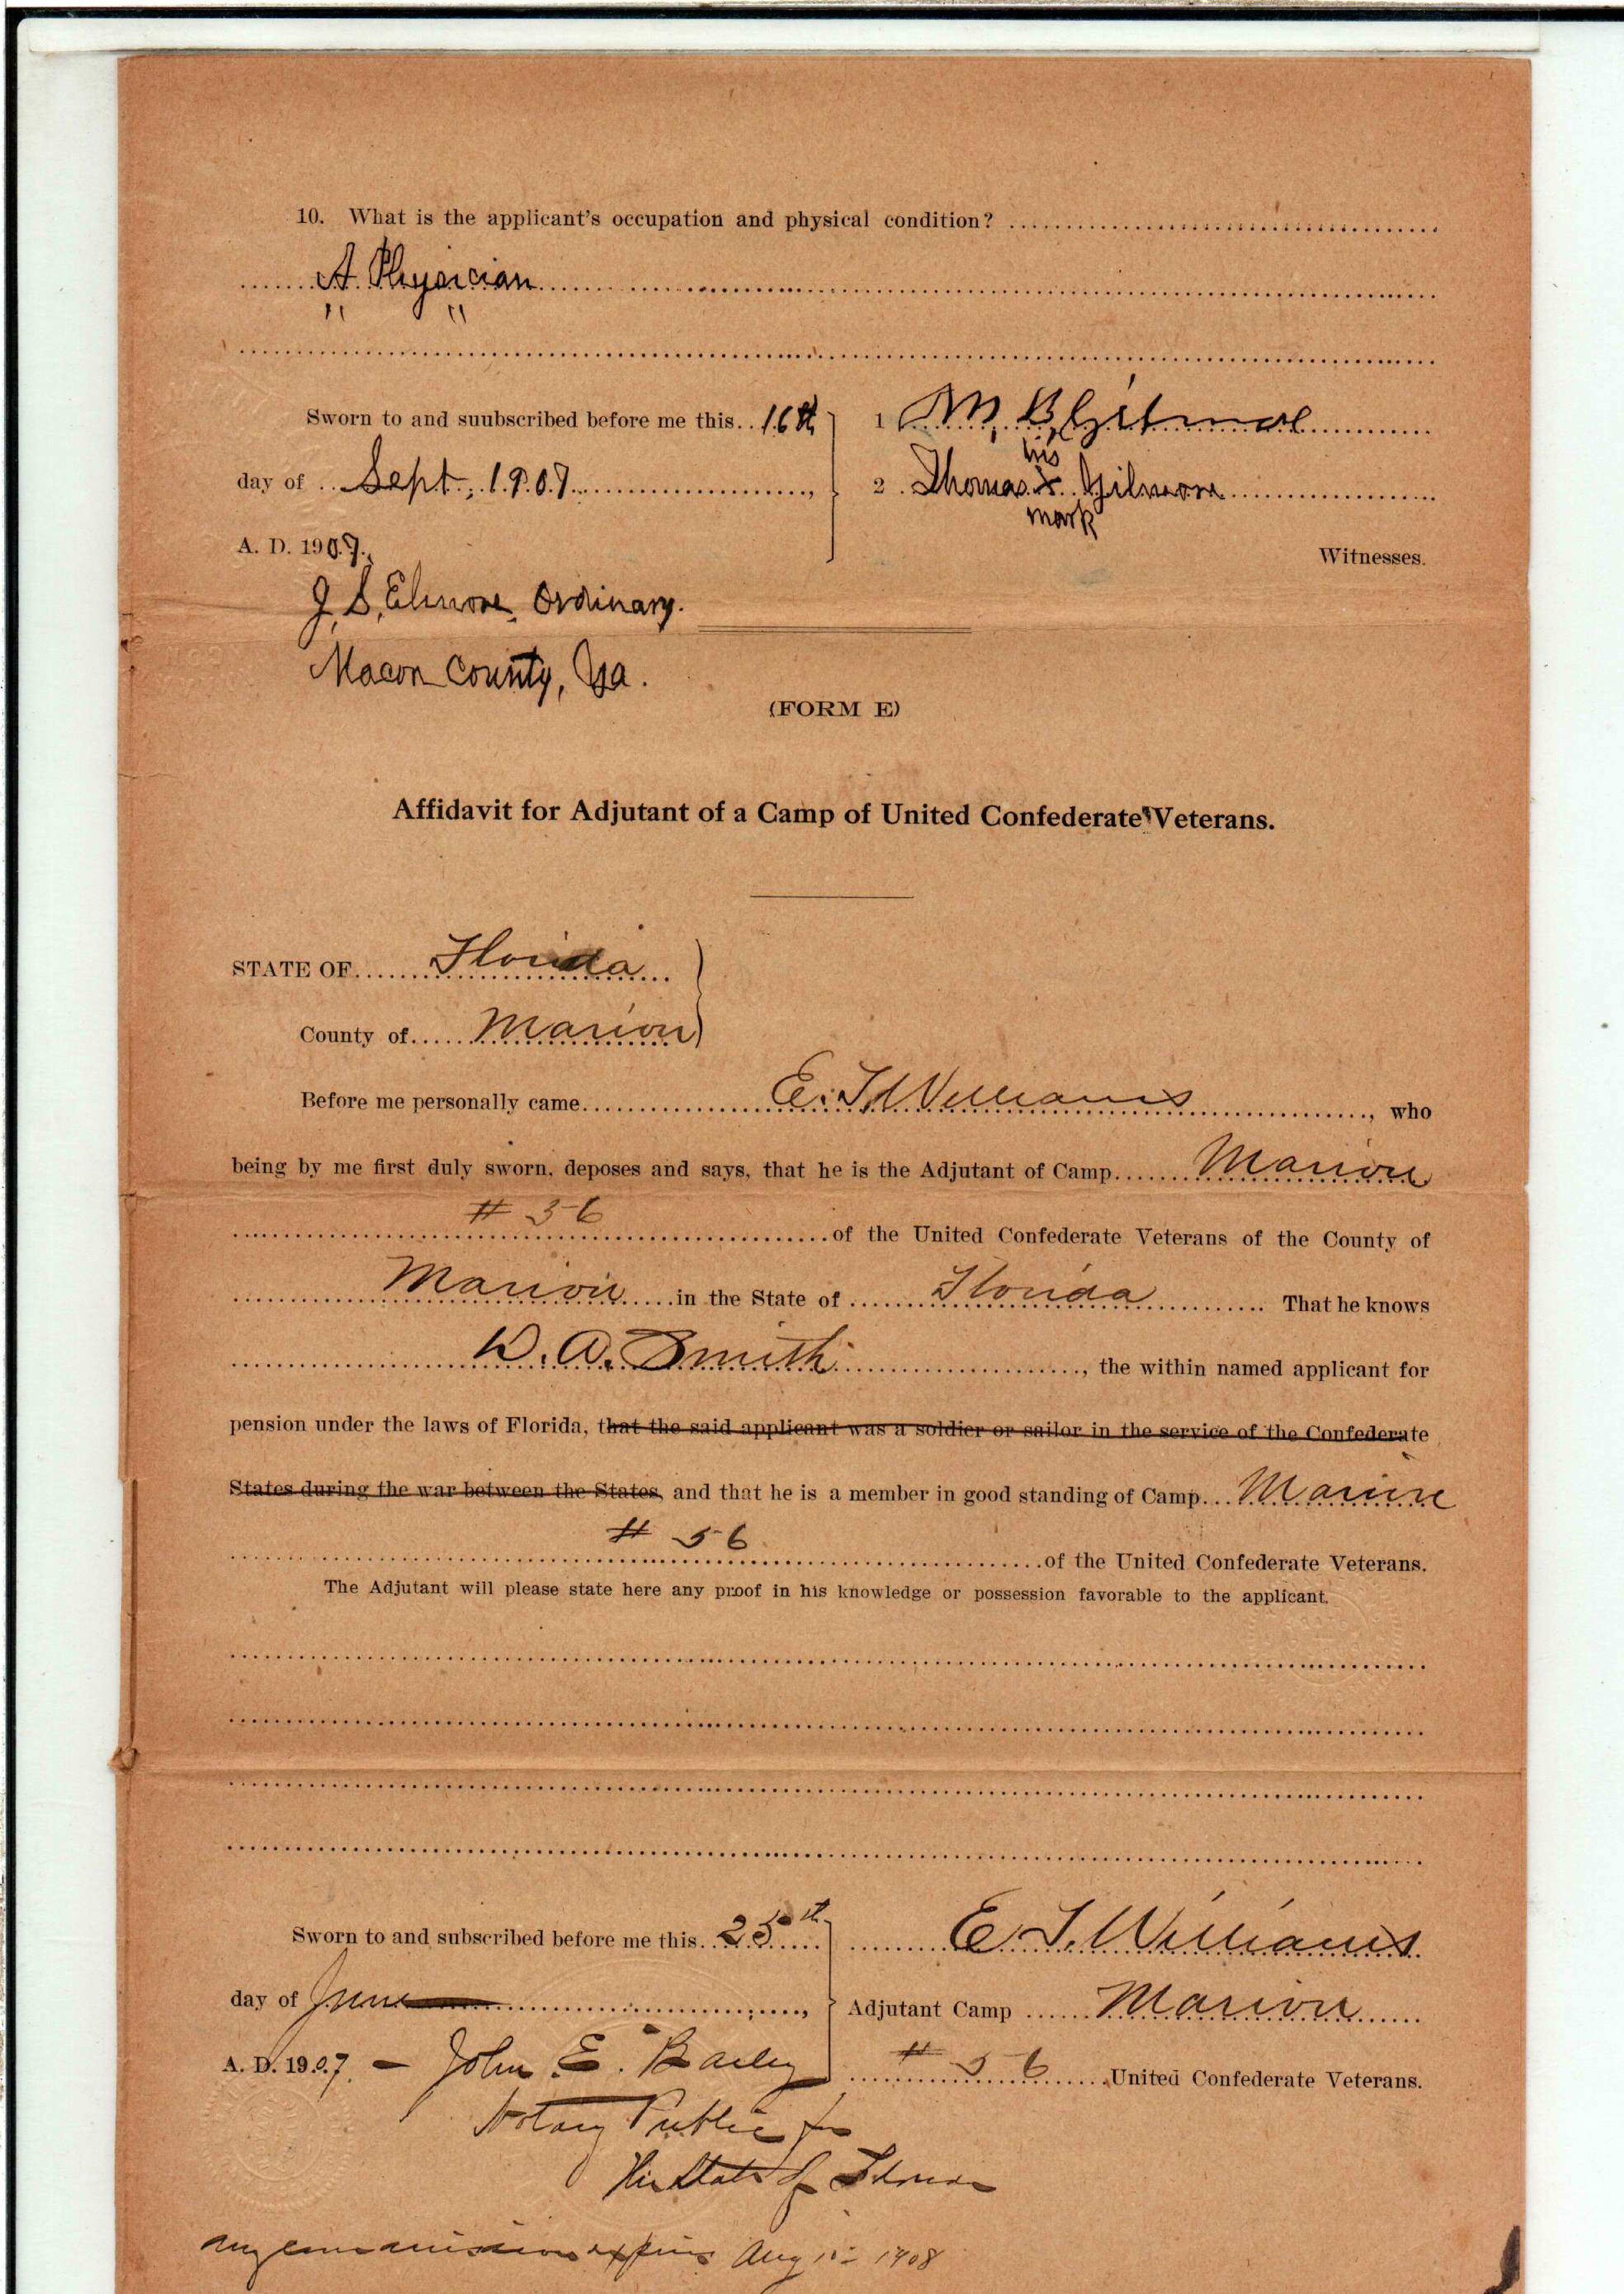 10. What is the applicant's occupation and physical condition?
A Physician
" "
Sworn to and suubscribed before me this 16th
1 M, B, Gilmore
day of Sept, 1907
his
2 Thomas X Gilmore
mark
A. D. 1907.
Witnesses.
J, S, Elmore, Ordinary.
Macon County, Ga.
(FORM E)
Affidavit for Adjutant of a Camp of United Confederate Veterans.
STATE OF Florida
County of Marion
Before me personally came E. T. Williams, who
being by me first duly sworn, deposes and says, that he is the Adjutant of Camp Marion
# 56
of the United Confederate Veterans of the County of
Marion in the State of Florida That he knows
D. A. Smith, the within named applicant for
pension under the laws of Florida, that the said applicant was a soldier or sailor in the service of the Confederate
States during the war between the States, and that he is a member in good standing of Camp Marion
# 56
of the United Confederate Veterans.
The Adjutant will please state here any proof in his knowledge or possession favorable to the applicant.
Sworn to and subscribed before me this 25th
E. T. Williams
day of June,
Adjutant Camp Marion
A. D. 1907 - John E. Bailey
# 56 United Confederate Veterans.
Notary Public for
the State of Florida
my commission expires Aug 1908